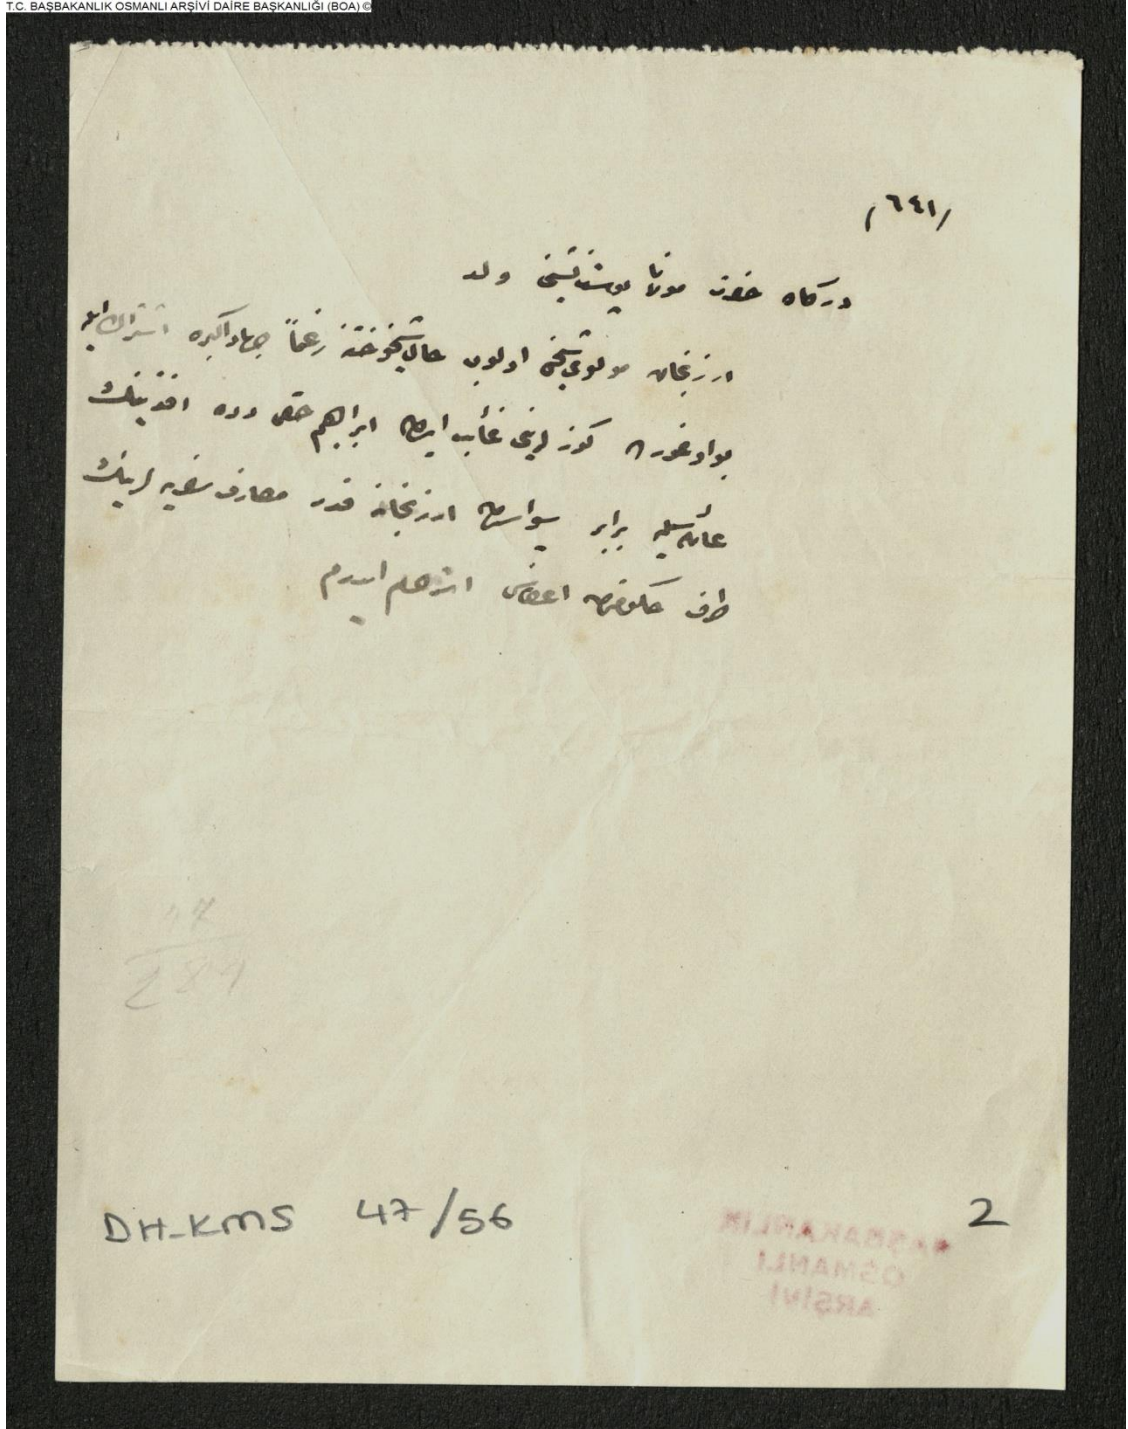 T.C. BAŞBAKANLIK OSMANLI ARŞİVİ DAİRE BAŞKANLIĞI (BOA) ©
/٦٤١/
درگاه حضرت مولانا پوستنشینی ولد
ارزنجان مولوی شیخی اولوب حال شیخوخته رغماً جهاد اکبره اشتراك ایله
بو اوغورده كوزلرینی غائب ایدن ابراهیم حقی دده افندینك
عائله سیله برابر سیواسدن ارزنجانه قدر مصارف سفریه لرینك
طرف حكومتدن اعطاسی استرحام ایدرم
47
284
DH-KMS 47/56
2
BAŞBAKANLIK
OSMANLI
ARŞİVİ